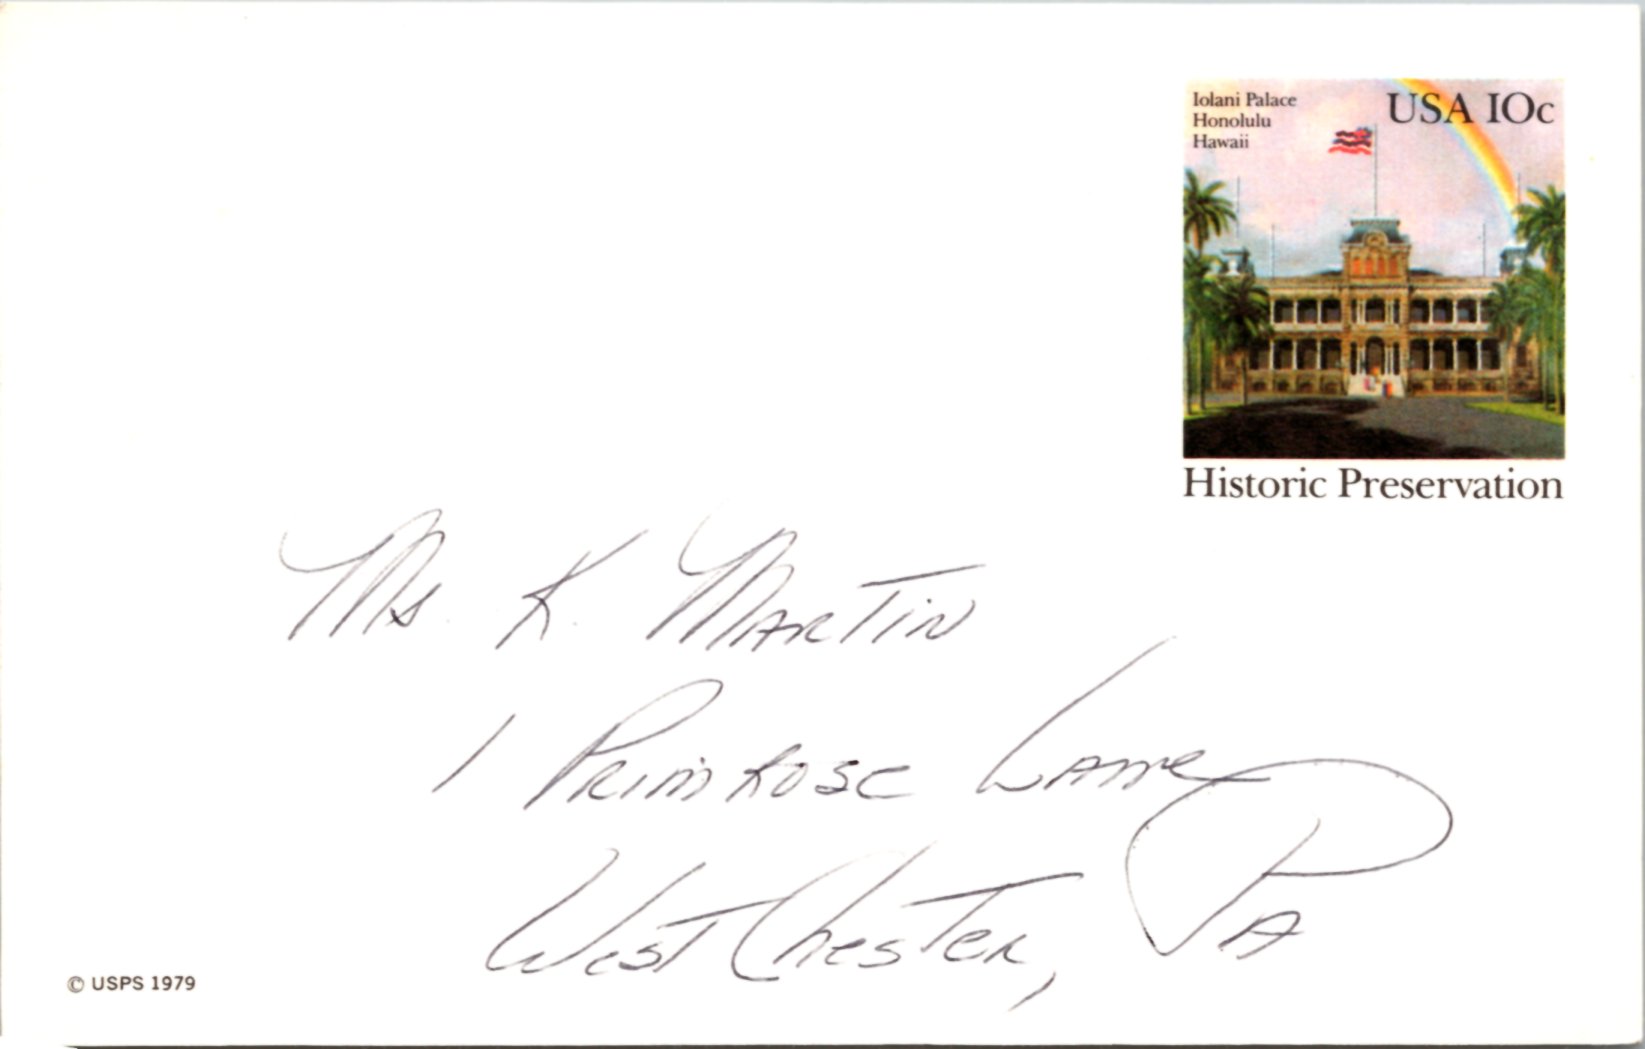 Iolani Palace
Honolulu
Hawaii
USA 10c
Historic Preservation
Ms. K. Martin
1 Primrose Lane
West Chester, PA
© USPS 1979